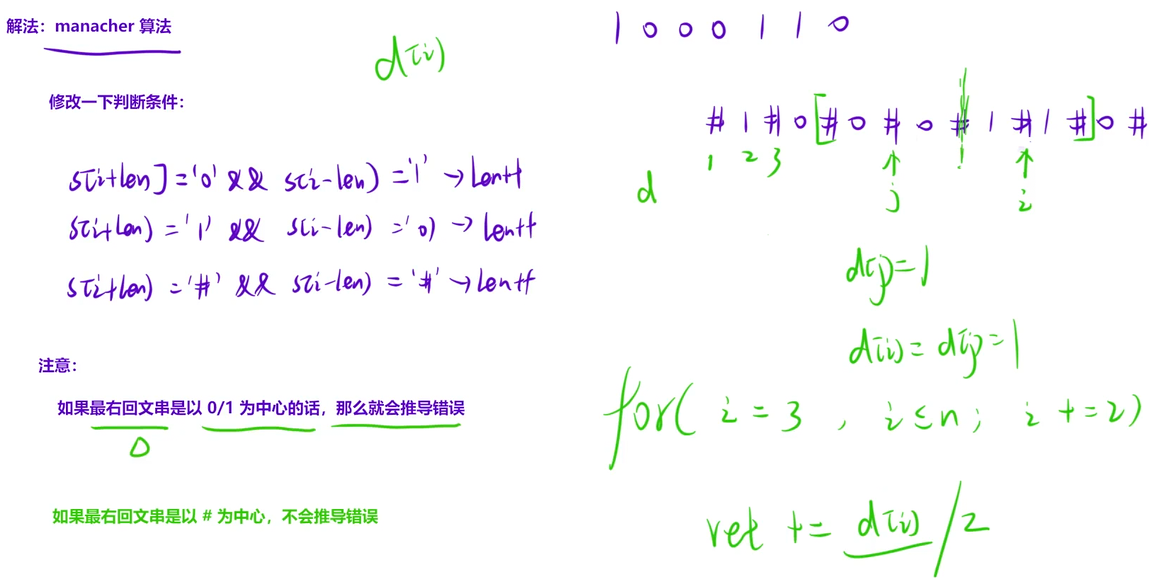 解法：manacher 算法
d[i]
修改一下判断条件：
s[i+len] = '0' && s[i-len] = '1' → len++
s[i+len] = '1' && s[i-len] = '0' → len++
s[i+len] = '#' && s[i-len] = '#' → len++
注意：
如果最右回文串是以 0/1 为中心的话，那么就会推导错误
0
如果最右回文串是以 # 为中心，不会推导错误
1 0 0 0 1 1 0
# 1 # 0 [ # 0 # 0 # 1 # 1 # ] 0 #
1 2 3 ↑ ↑
d j i
d[j] = 1
d[i] = d[j] = 1
for( i = 3 , i ≤ n ; i += 2 )
ret += d[i] / 2